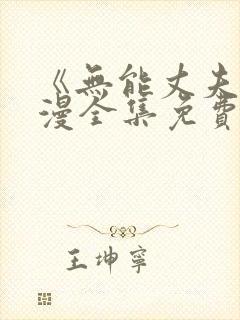 《無能丈夫
漫全集免費
王坤寧